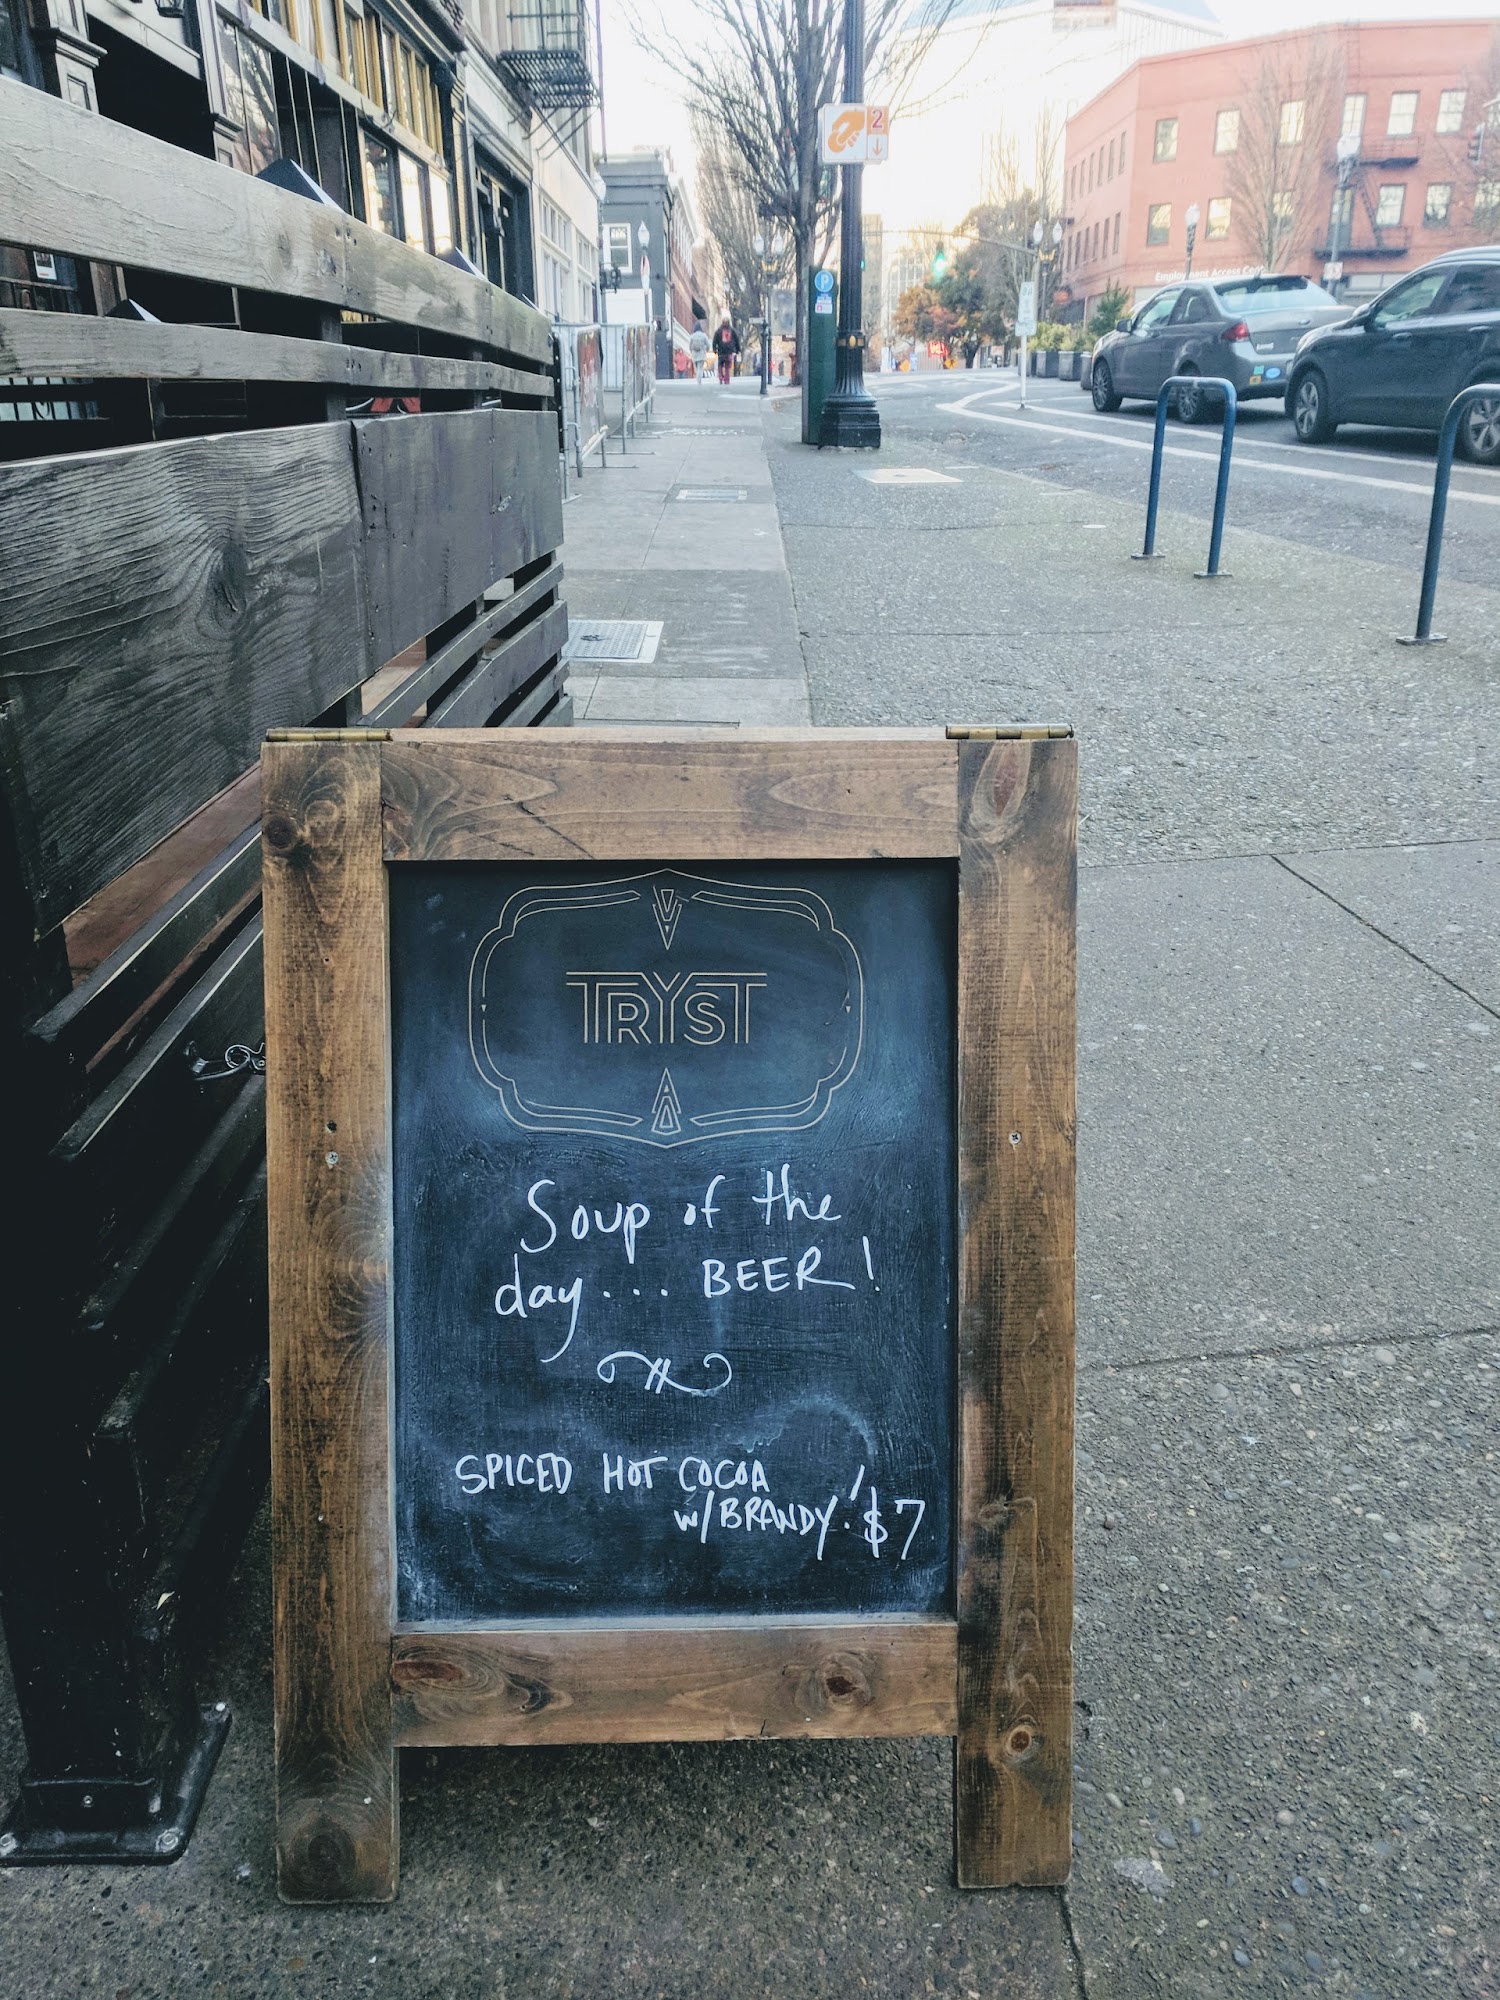 2
P
Employment Access Center
TRYST
Soup of the
day... BEER!
SPICED HOT COCOA
w/BRANDY! $7